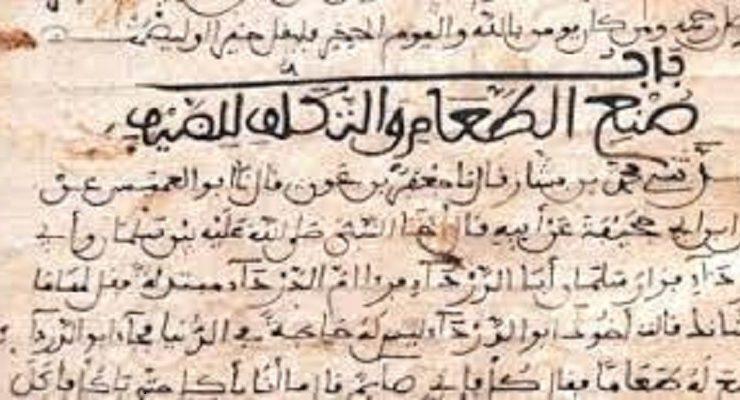 رحمه ومن كان يومن بالله واليوم الاخر فليقل خيرا او ليصمت
باب
صُنْعِ الطَّعَامِ وَالتَّكَلُّفِ لِلضَّيْفِ
محمد بن بشار قال نا جعفر بن عون قال نا ابو العميس عن
ابي جحيفة عن أبيه قال اخا النبي صلى الله عليه بين سلمان وأبي
الدرداء فزار سلمان أبا الدرداء فرءا ام الدرداء متبذلة فقال لها ما
شانك قالت أخوك ابو الدرداء ليس له حاجة في الدنيا فجاء ابو الدرداء
له طعاما فقال كل فاني صايم قال ما أنا بأكل حتى تاكل فأكل